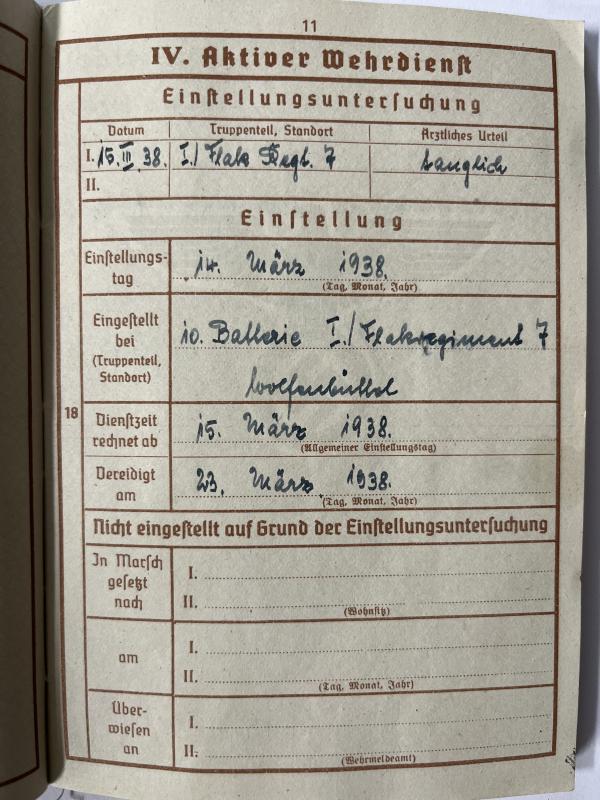 11
IV. Aktiver Wehrdienst
Einstellungsuntersuchung
Datum Truppenteil, Standort Ärztliches Urteil
I. 15. III. 38. I./ Flak Regt. 7 tauglich
II.
Einstellung
Einstellungs-
tag
14. März 1938.
(Tag, Monat, Jahr)
Eingestellt
bei
(Truppenteil,
Standort)
10. Batterie I./ Flakregiment 7
Wolfenbüttel
18
Dienstzeit
rechnet ab
15. März 1938.
(Allgemeiner Einstellungstag)
Vereidigt
am
23. März 1938.
(Tag, Monat, Jahr)
Nicht eingestellt auf Grund der Einstellungsuntersuchung
In Marsch
gesetzt
nach
I.
II.
(Wohnsitz)
am
I.
II.
(Tag, Monat, Jahr)
Über-
wiesen
an
I.
II.
(Wehrmeldeamt)